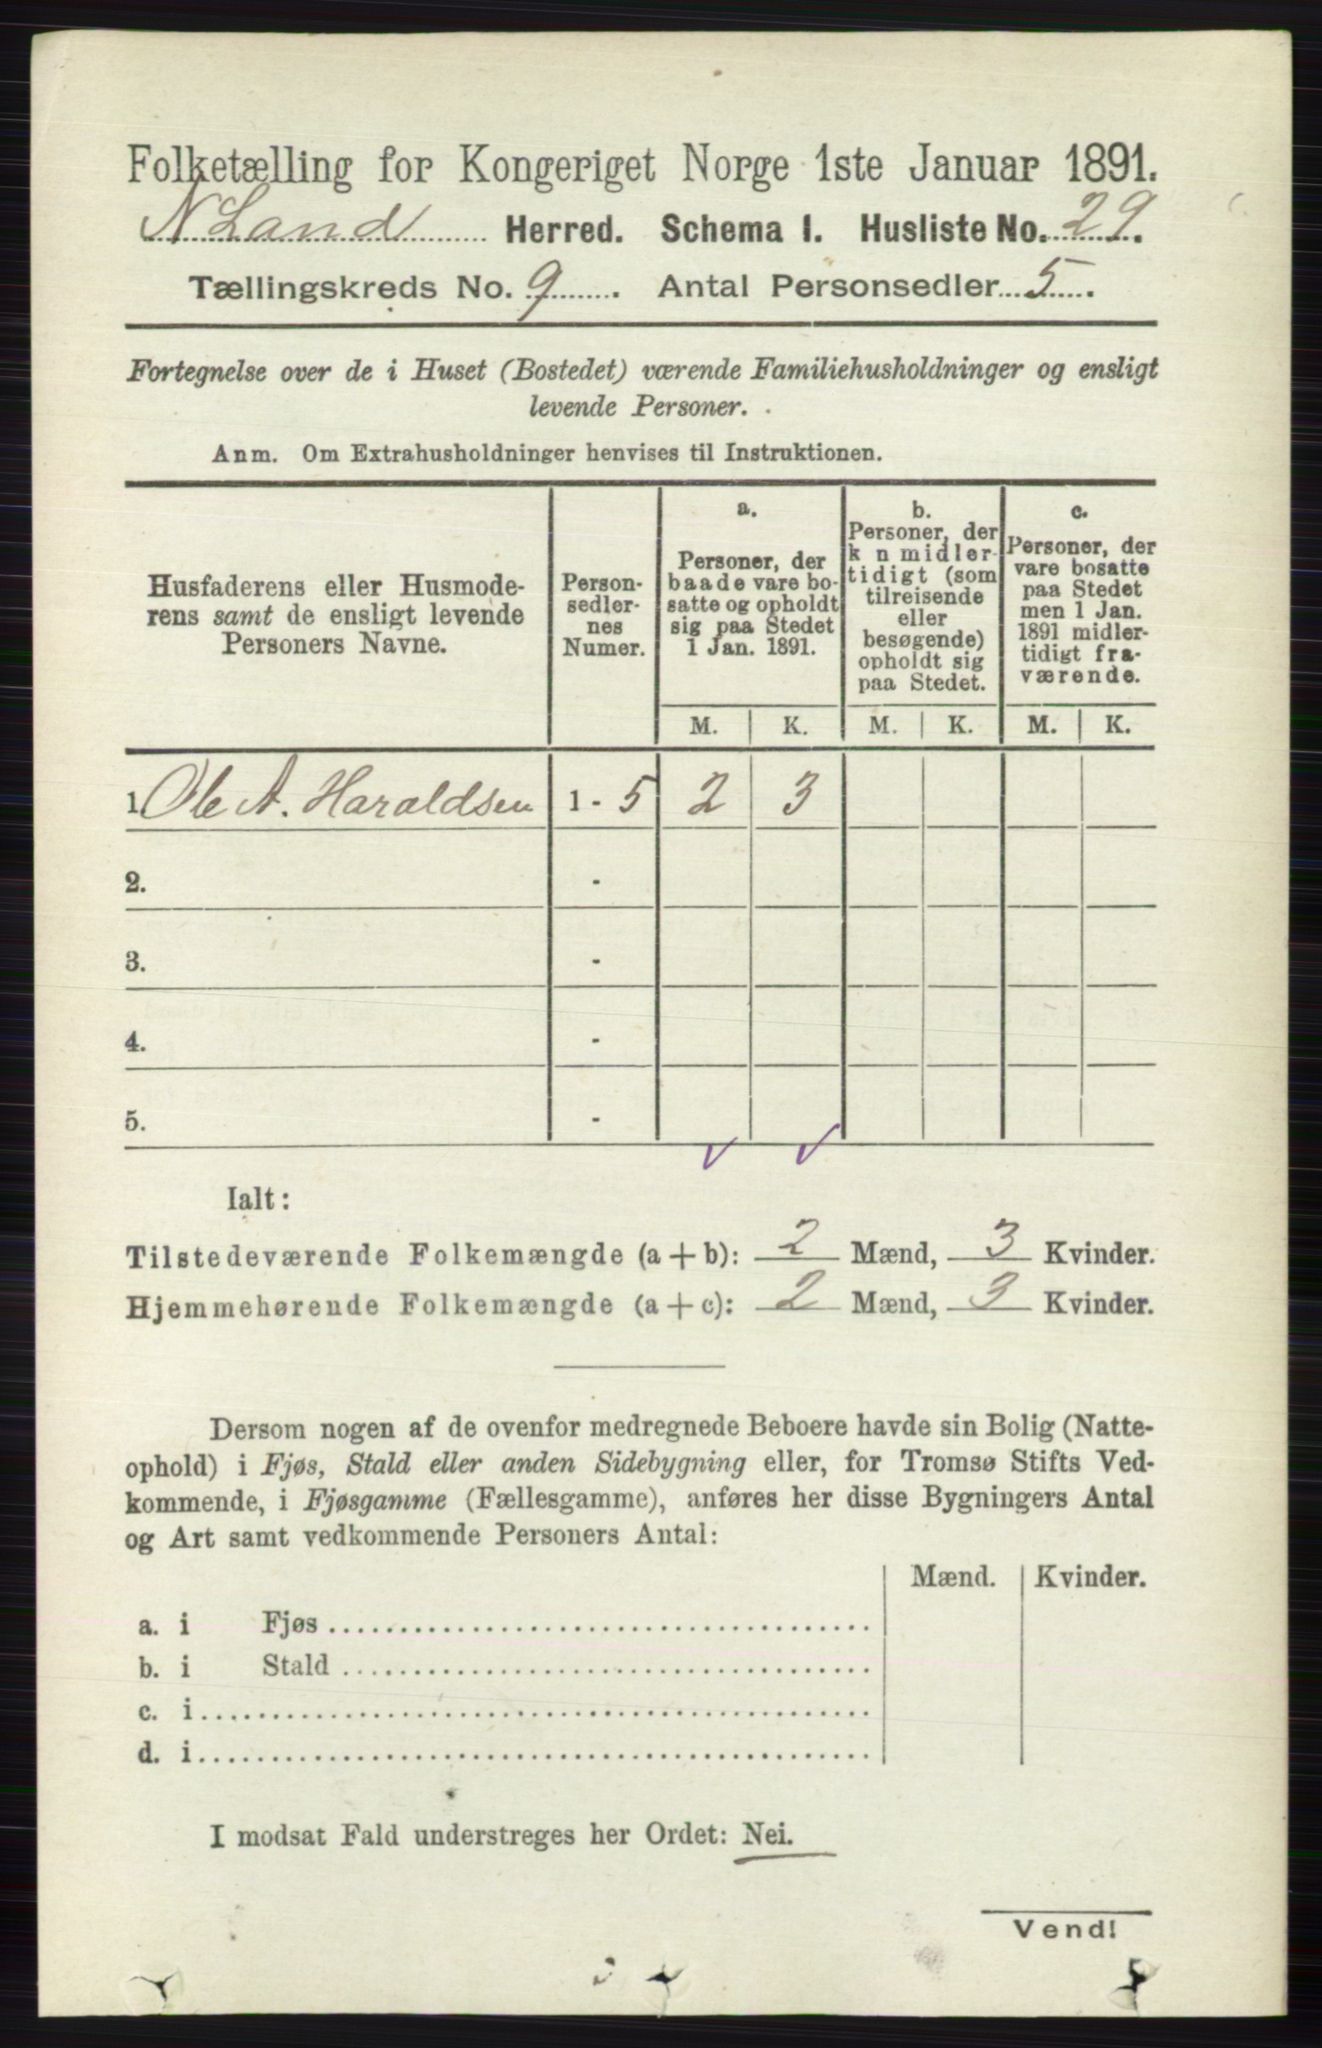 Folketælling for Kongeriget Norge 1ste Januar 1891.
N Land Herred. Schema I. Husliste No. 29.
Tællingskreds No. 9. Antal Personsedler 5.
Fortegnelse over de i Huset (Bostedet) værende Familiehusholdninger og ensligt
levende Personer.
Anm. Om Extrahusholdninger henvises til Instruktionen.
Husfaderens eller Husmode-
rens samt de ensligt levende
Personers Navne.
Person-
sedler-
nes
Numer.
a.
Personer, der
baade vare bo-
satte og opholdt
sig paa Stedet
1 Jan. 1891.
b.
Personer, der
k n midler-
tidigt (som
tilreisende
eller
besøgende)
opholdt sig
paa Stedet.
c.
Personer, der
vare bosatte
paa Stedet
men 1 Jan.
1891 midler-
tidigt fra-
værende.
M. K. M. K. M. K.
1. Ole A. Haraldsen 1 - 5 2 3
2. -
3. -
4. -
5. -
Ialt:
Tilstedeværende Folkemængde (a + b): 2 Mænd, 3 Kvinder.
Hjemmehørende Folkemængde (a + c): 2 Mænd, 3 Kvinder.
Dersom nogen af de ovenfor medregnede Beboere havde sin Bolig (Natte-
ophold) i Fjøs, Stald eller anden Sidebygning eller, for Tromsø Stifts Ved-
kommende, i Fjøsgamme (Fællesgamme), anføres her disse Bygningers Antal
og Art samt vedkommende Personers Antal:
Mænd. Kvinder.
a. i Fjøs
b. i Stald
c. i
d. i
I modsat Fald understreges her Ordet: Nei.
Vend!